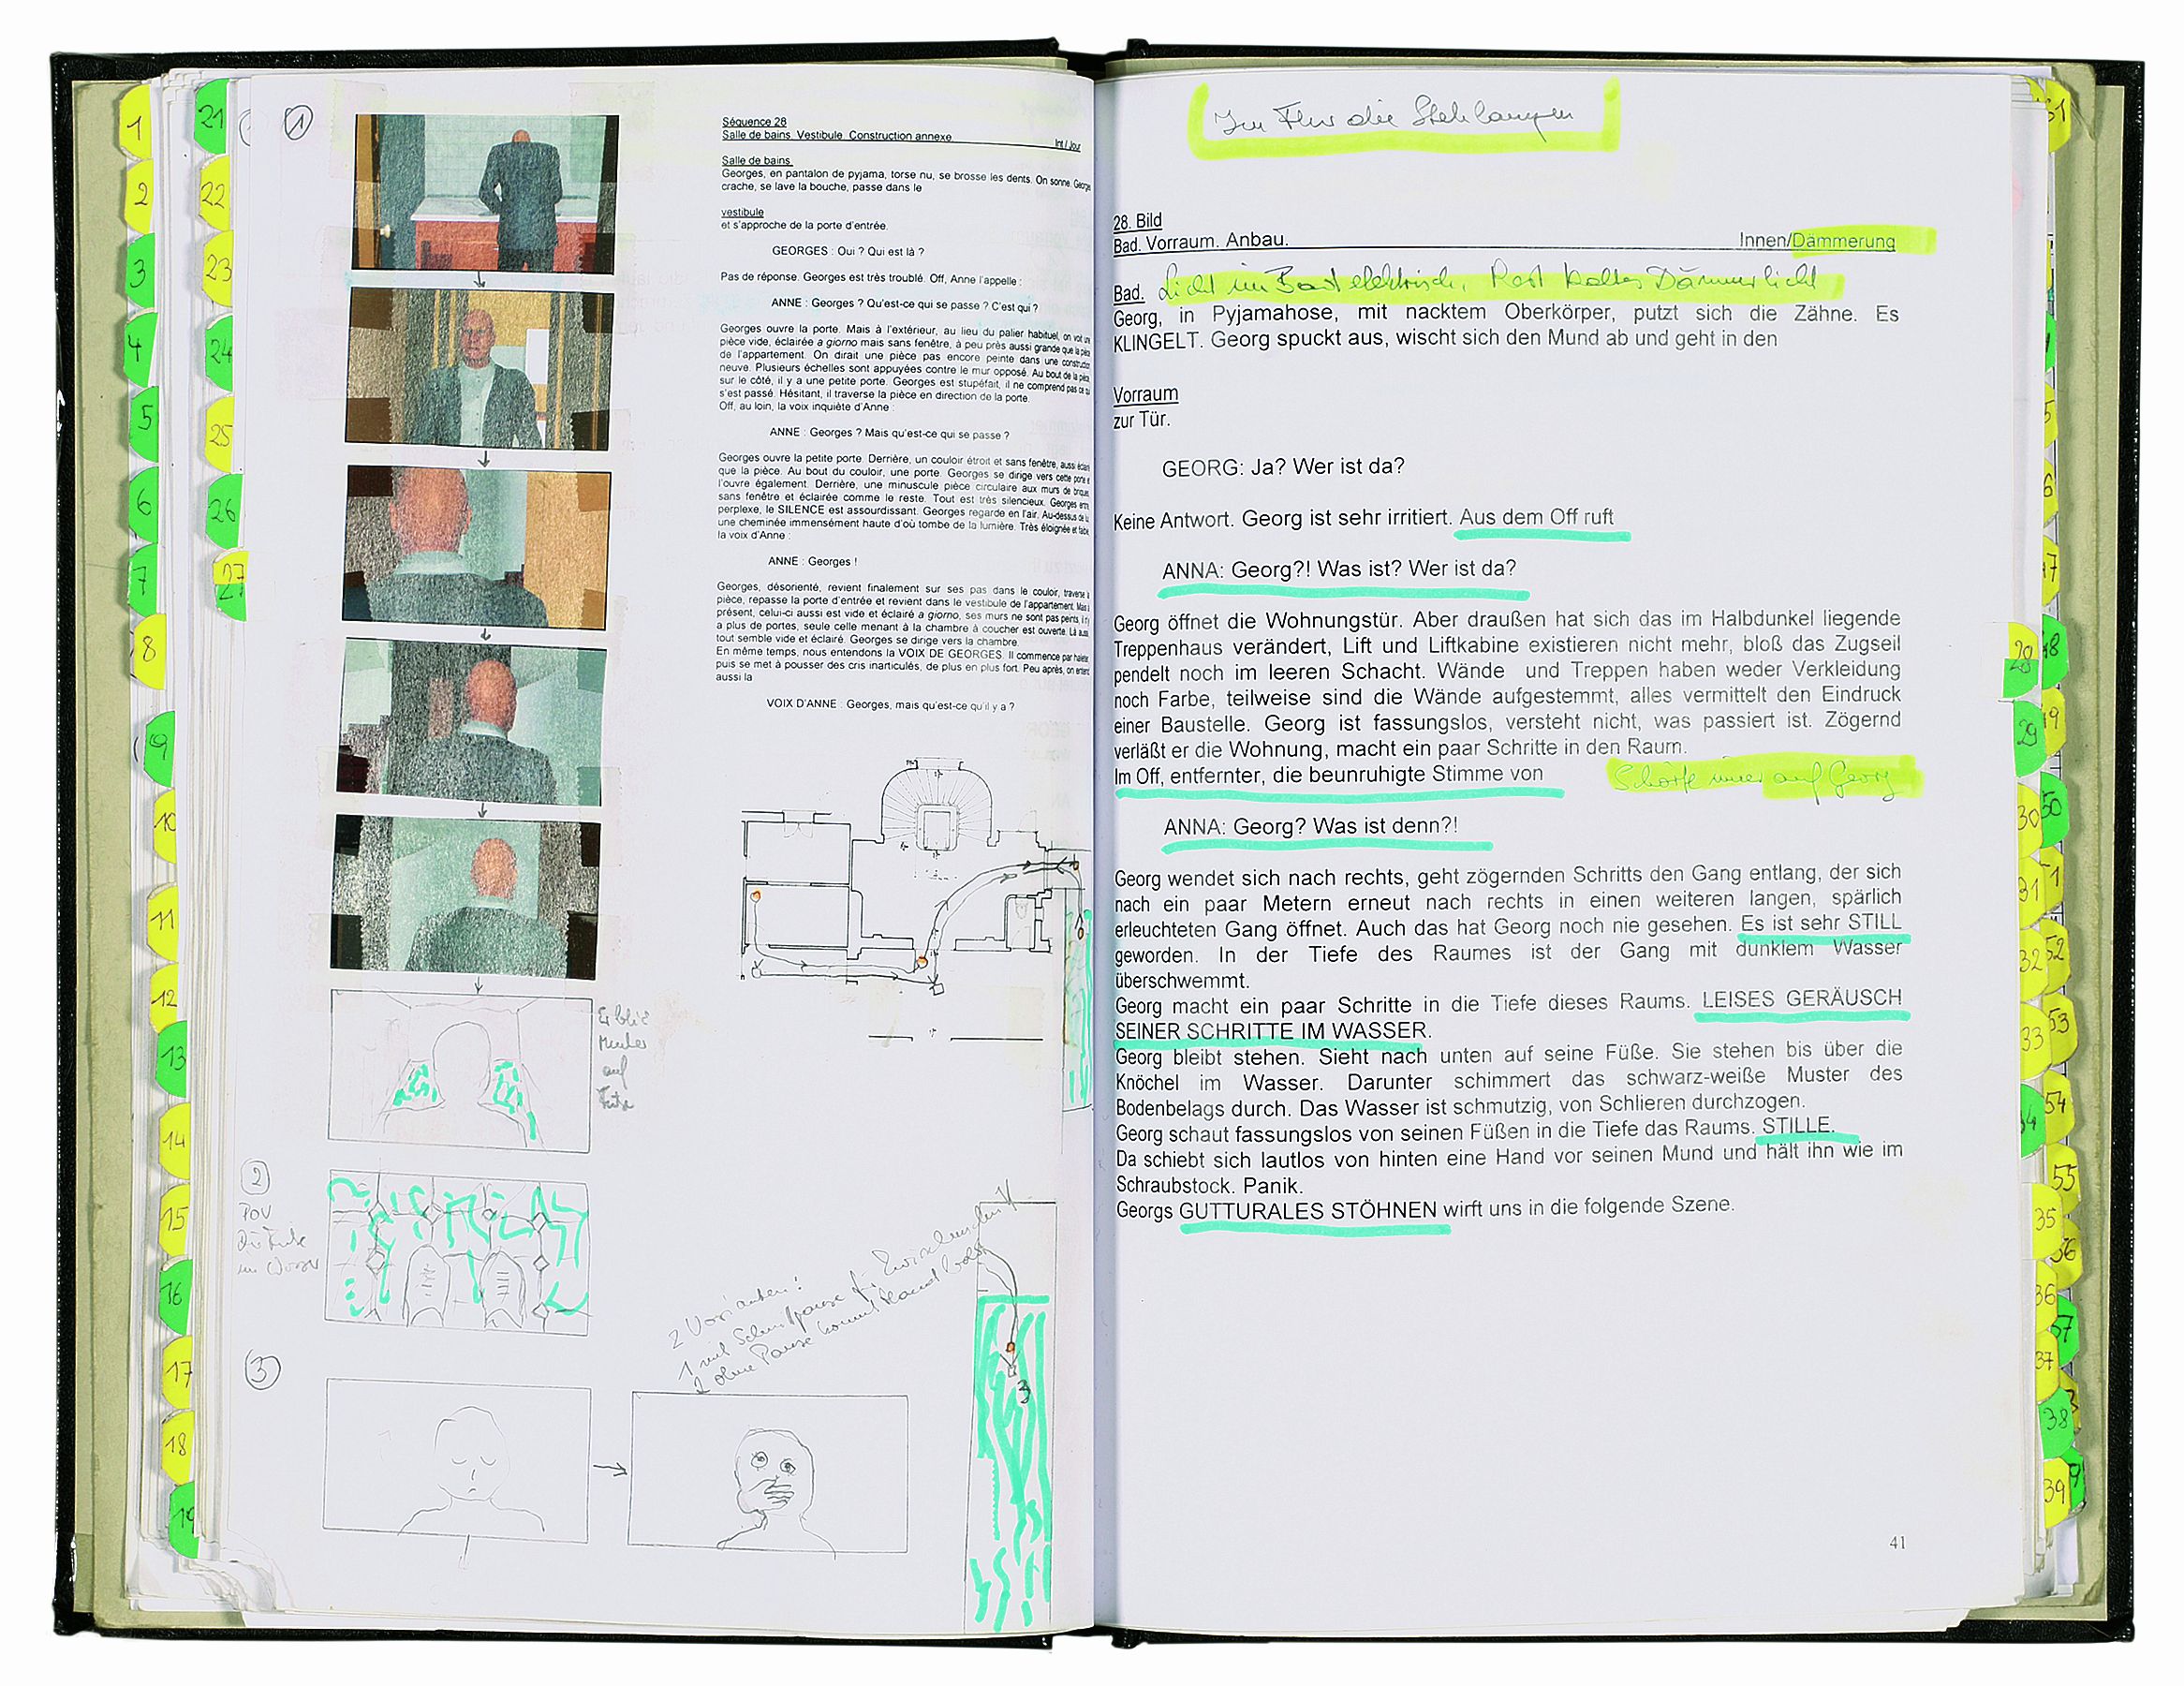 1
2
3
4
5
6
7
8
9
10
11
12
13
14
15
16
17
18
19
21
22
23
24
25
26
27
27
1
Séquence 28
Salle de bains. Vestibule. Construction annexe Int / Jour
Salle de bains
Georges, en pantalon de pyjama, torse nu, se brosse les dents. On sonne. Georges
crache, se lave la bouche, passe dans le
vestibule
et s'approche de la porte d'entrée.
GEORGES : Oui ? Qui est là ?
Pas de réponse. Georges est très troublé. Off, Anne l'appelle :
ANNE : Georges ? Qu'est-ce qui se passe ? C'est qui ?
Georges ouvre la porte. Mais à l'extérieur, au lieu du palier habituel, on voit une
pièce vide, éclairée a giorno mais sans fenêtre, à peu près aussi grande que la pièce
de l'appartement. On dirait une pièce pas encore peinte dans une construction
neuve. Plusieurs échelles sont appuyées contre le mur opposé. Au bout de la pièce,
sur le côté, il y a une petite porte. Georges est stupéfait, il ne comprend pas ce qui
s'est passé. Hésitant, il traverse la pièce en direction de la porte.
Off, au loin, la voix inquiète d'Anne :
ANNE : Georges ? Mais qu'est-ce qui se passe ?
Georges ouvre la petite porte. Derrière, un couloir étroit et sans fenêtre, aussi éclairé
que la pièce. Au bout du couloir, une porte. Georges se dirige vers cette porte et
l'ouvre également. Derrière, une minuscule pièce circulaire aux murs de briques,
sans fenêtre et éclairée comme le reste. Tout est très silencieux. Georges entre,
perplexe, le SILENCE est assourdissant. Georges regarde en l'air. Au-dessus de lui
une cheminée immensément haute d'où tombe de la lumière. Très éloignée et faible,
la voix d'Anne :
ANNE : Georges !
Georges, désorienté, revient finalement sur ses pas dans le couloir, traverse la
pièce, repasse la porte d'entrée et revient dans le vestibule de l'appartement. Mais à
présent, celui-ci aussi est vide et éclairé a giorno, ses murs ne sont pas peints, il n'y
a plus de portes, seule celle menant à la chambre à coucher est ouverte. Là aussi,
tout semble vide et éclairé. Georges se dirige vers la chambre.
En même temps, nous entendons la VOIX DE GEORGES. Il commence par haleter
puis se met à pousser des cris inarticulés, de plus en plus fort. Peu après, on entend
aussi la
VOIX D'ANNE : Georges, mais qu'est-ce qu'il y a ?
Er blickt
runter
auf
Füße
2
POV
Die Füße
im Wasser
2 Varianten!
1 mit Schnittpause für Zwischenschnitt
2 ohne Pause kommt Hand bald
3
3
Im Flur die Stehlampen
28. Bild
Bad. Vorraum. Anbau. Innen/Dämmerung
Bad. Licht im Bad elektrisch, Rest kaltes Dämmerlicht
Georg, in Pyjamahose, mit nacktem Oberkörper, putzt sich die Zähne. Es
KLINGELT. Georg spuckt aus, wischt sich den Mund ab und geht in den
Vorraum
zur Tür.
GEORG: Ja? Wer ist da?
Keine Antwort. Georg ist sehr irritiert. Aus dem Off ruft
ANNA: Georg?! Was ist? Wer ist da?
Georg öffnet die Wohnungstür. Aber draußen hat sich das im Halbdunkel liegende
Treppenhaus verändert, Lift und Liftkabine existieren nicht mehr, bloß das Zugseil
pendelt noch im leeren Schacht. Wände und Treppen haben weder Verkleidung
noch Farbe, teilweise sind die Wände aufgestemmt, alles vermittelt den Eindruck
einer Baustelle. Georg ist fassungslos, versteht nicht, was passiert ist. Zögernd
verläßt er die Wohnung, macht ein paar Schritte in den Raum.
Im Off, entfernter, die beunruhigte Stimme von Schärfe immer auf Georg
ANNA: Georg? Was ist denn?!
Georg wendet sich nach rechts, geht zögernden Schritts den Gang entlang, der sich
nach ein paar Metern erneut nach rechts in einen weiteren langen, spärlich
erleuchteten Gang öffnet. Auch das hat Georg noch nie gesehen. Es ist sehr STILL
geworden. In der Tiefe des Raumes ist der Gang mit dunklem Wasser
überschwemmt.
Georg macht ein paar Schritte in die Tiefe dieses Raums. LEISES GERÄUSCH
SEINER SCHRITTE IM WASSER.
Georg bleibt stehen. Sieht nach unten auf seine Füße. Sie stehen bis über die
Knöchel im Wasser. Darunter schimmert das schwarz-weiße Muster des
Bodenbelags durch. Das Wasser ist schmutzig, von Schlieren durchzogen.
Georg schaut fassungslos von seinen Füßen in die Tiefe das Raums. STILLE.
Da schiebt sich lautlos von hinten eine Hand vor seinen Mund und hält ihn wie im
Schraubstock. Panik.
Georgs GUTTURALES STÖHNEN wirft uns in die folgende Szene.
41
28
29
30
31
32
33
35
36
37
38
39
50
52
53
54
55